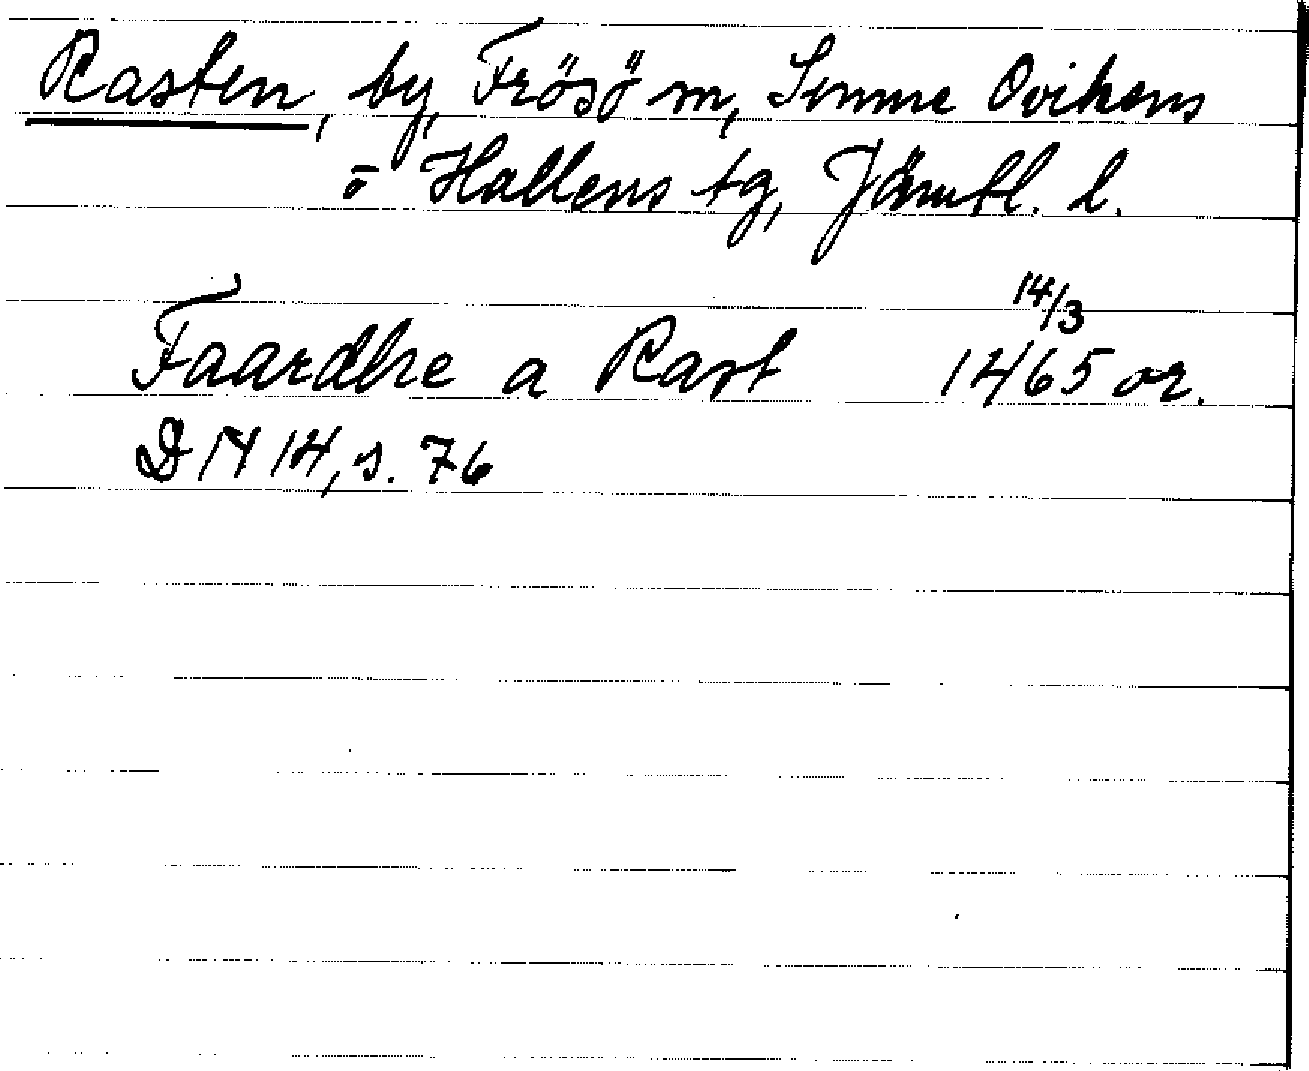 Rasten, by, Frösö m, Sunne Ovikens
o Hallens tg, Jämtl. l.
Faardhe a Rast 14/3 1465 or.
DN 14, s. 76